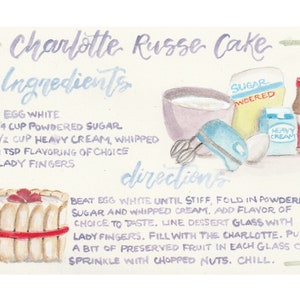 Charlotte Russe Cake
Ingredients
EGG WHITE
4 CUP POWDERED SUGAR
½ CUP HEAVY CREAM, WHIPPED
TSP FLAVORING OF CHOICE
LADY FINGERS
SUGAR
POWDERED
HEAVY
CREAM
directions
BEAT EGG WHITE UNTIL STIFF, FOLD IN POWDERE
SUGAR AND WHIPPED CREAM. ADD FLAVOR OF
CHOICE TO TASTE. LINE DESSERT GLASS WITH
LADYFINGERS. FILL WITH THE CHARLOTTE. PU
A BIT OF PRESERVED FRUIT IN EACH GLASS O
SPRINKLE WITH CHOPPED NUTS. CHILL.